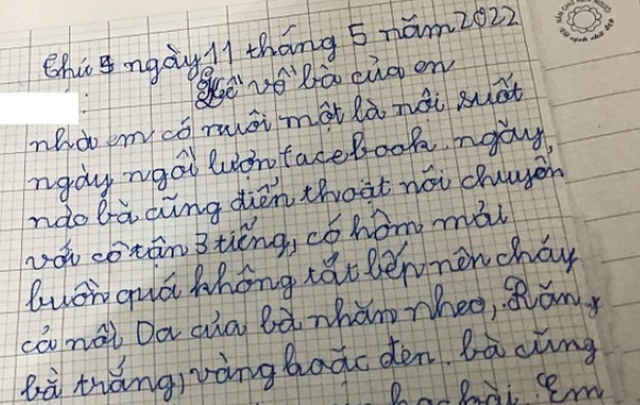 Thứ 5 ngày 11 tháng 5 năm 2022
Kể về bà của en
:
nhà em có nuôi một là nôi suốt
ngày ngồi lướn facebook, ngày,
nào bà cũng điến thoạt nôi chuyên
với cô tận 3 tiếng, có hôm mải
buôn quá không tắt bếp nên cháy
cả nồi Da của bà nhăn nheo, Răng
bà trắng, vàng hoặc đen. bà cũng
học bài. Em